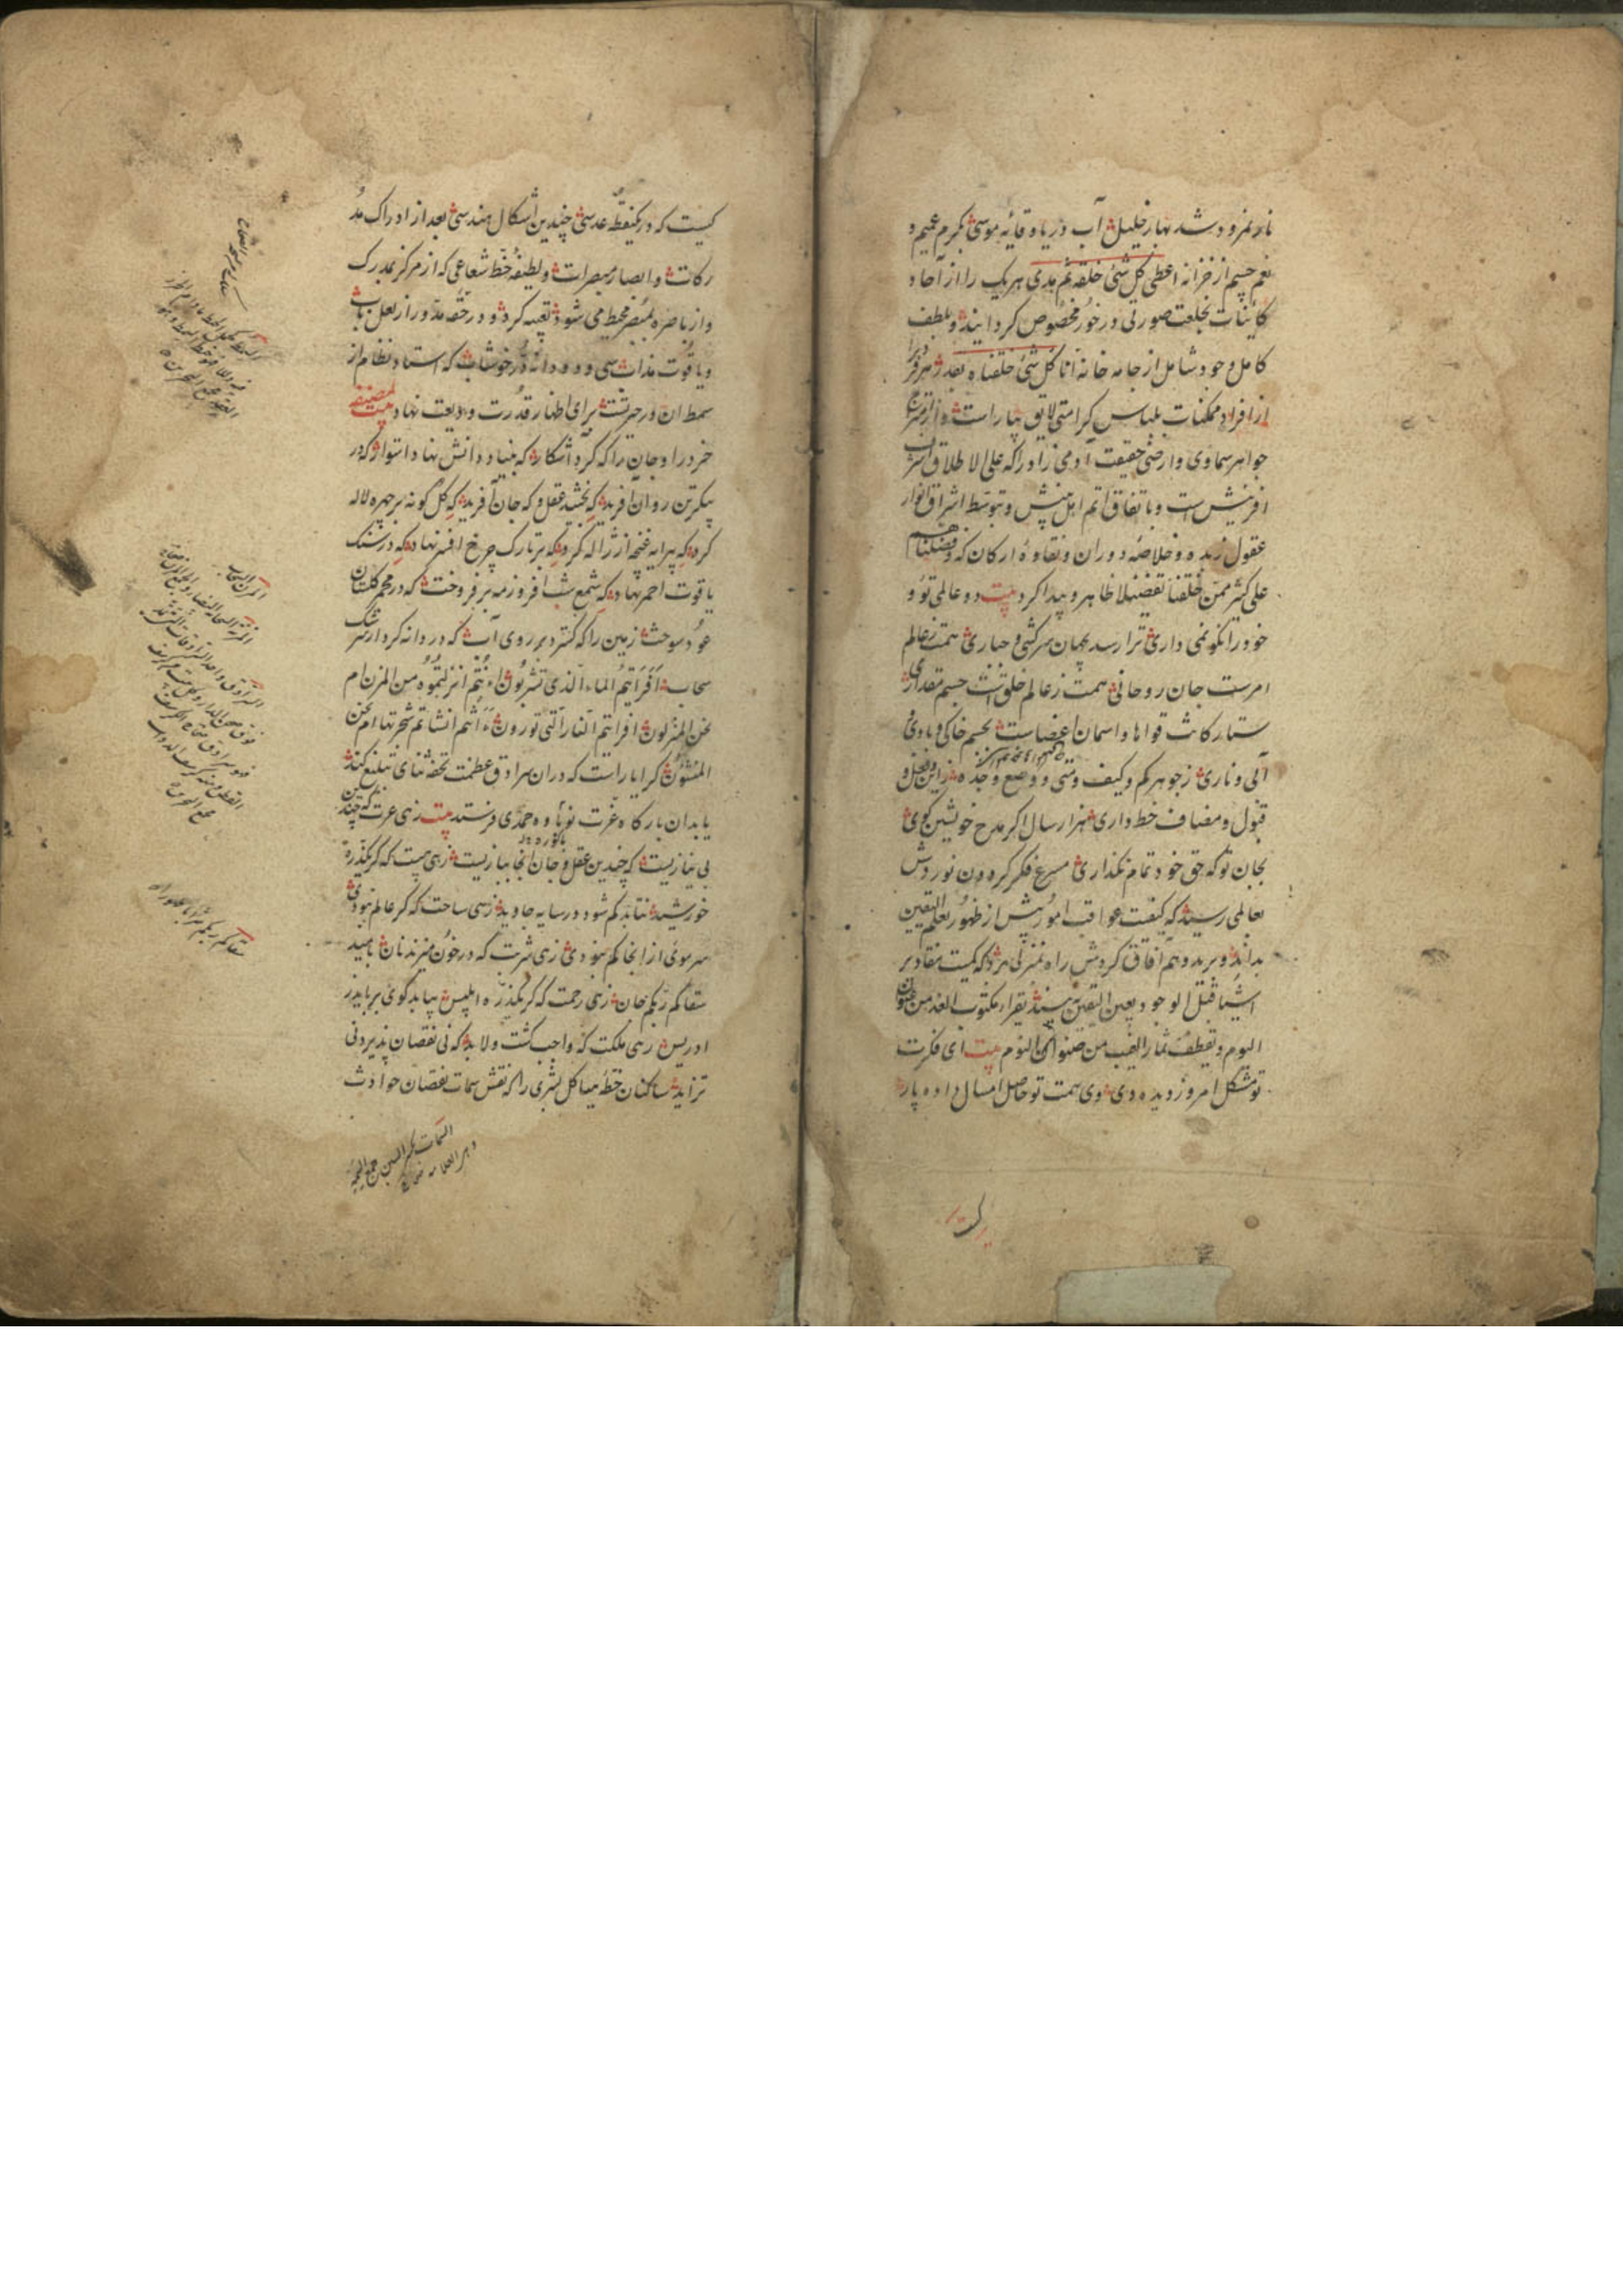 نار نمرود شد بهار خلیل آب دریا وقایهٔ موسی بکرم عمیم و
نعم جسیم از خزانه اعطی کل شئ خلقه ثم هدی هر یک را از آحاد
کاینات بخلعت صورتی در خور مخصوص کردانید و بلطف
کامل وجود شامل از جامه خانه انا کل شئ خلقناه بقدر هر فرد را
از افراد ممکنات بلباس کرامتی لایق بیاراست و از
جواهر سماوی و ارضی حقیقت آدمی زاد را که علی الاطلاق اشرف
افرینش است و باتفاق اتم اهل بینش و بتوسط اشراق انوار
عقول زبده و خلاصه دوران و نقاوهٔ ارکان که و فضلناهم
علی کثیر ممن خلقنا تفضیلا ظاهر و پیدا کرد بیت دو عالمی تو و
خود را نکو نمی داری ترا رسد بجهان سرکشی و جباری همت ز عالم
امرست جان روحانی همت ز عالم خلق است جسم مقداری
ستارکانت قواها و اسمان اعضاست بجسم خاکی و بادی و
آبی و ناری ز جوهر کم و کیف و متی و وضع و جده ز این و فعل و
قبول و مضاف خط داری هزار سال اکر مدح خویشتن کوی
بجان تو که حق خود تمام نکذاری مسرع فکر کره دون نوردش
بعالمی رسید که کیفیت عواقب امور پیش از ظهور بعلم الیقین
بداند و برید وهم آفاق کردش راه بمنزلی برد که کمیت مقادیر
اشیا قبل الوجود بعین الیقین بیند یقراء مکتوب الغد من عنوان
الیوم و یقطف ثمار الغیب من صنوان النوم بیت ای فکرت
تو مشکل امروز دیده دی وی همت تو حاصل امسال داده پار
کیست که در یکنقطه عدسی چندین اشکال هندسی بعد از ادراک مد
رکات و ابصار مبصرات و لطیفهٔ خط شعاعی که از مرکز بمدرک
و از باصره بمبصر محیط می شود تعبیه کرد و در حقه مدور از لعل ناب
و یاقوت مذاب سی و دو دانه در خوشاب که استاد نظام از
سمط ان در حیرتست برای اظهار قدرت ودیعت نهاد بیت لمصنفه
خرد را و جان را که کرد آشکار که بنیاد دانش نهاد استوار که در
پیکر تن روان آفرید که بخشید عقل و که جان آفرید که کل کونه بر چهره لاله
کرد که پیرایه غنچه از ژاله کرد که بر تارک چرخ افسر نهاد که در سنک
یاقوت احمر نهاد که شمع شب افروز مه بر فروخت که در مجمر کلستان
عود سوخت زمین را که کسترد بر روی آب که دردانه کرد از سرشک
سحاب افرایتم الماء الذی تشربون ءانتم انزلتموه من المزن ام
نحن المنزلون افرایتم النار التی تورون ءانتم انشاتم شجرتها ام نحن
المنشؤن کرا یاراست که دران سرادق عظمت تحفه ثنای تبلیغ کند
یا بدان بارکاه عزت نوباوه حمدی فرستد بیت زهی عزت که چندین
بی نیازیست که چندین عقل و جان انجا ببازیست زهی هیبت که کر یکذره
خورشید نتابد کم شود در سایه جاوید زهی ساحت که کر عالم نبودی
سر موی از انجا کم نبودی زهی شربت که در خون میزند نان بامید
سقاکم ربکم جان زهی رحمت که کر یکذره ابلیس بیابد کوی برباید ز
ادریس زهی ملکت که واجب کشت و لابد که نی نقصان پذیرد نی
تزاید ساکنان خطه هیاکل بشری را که نقش سمات نقصان حوادث
سقاکم ربکم شرابا طهورا